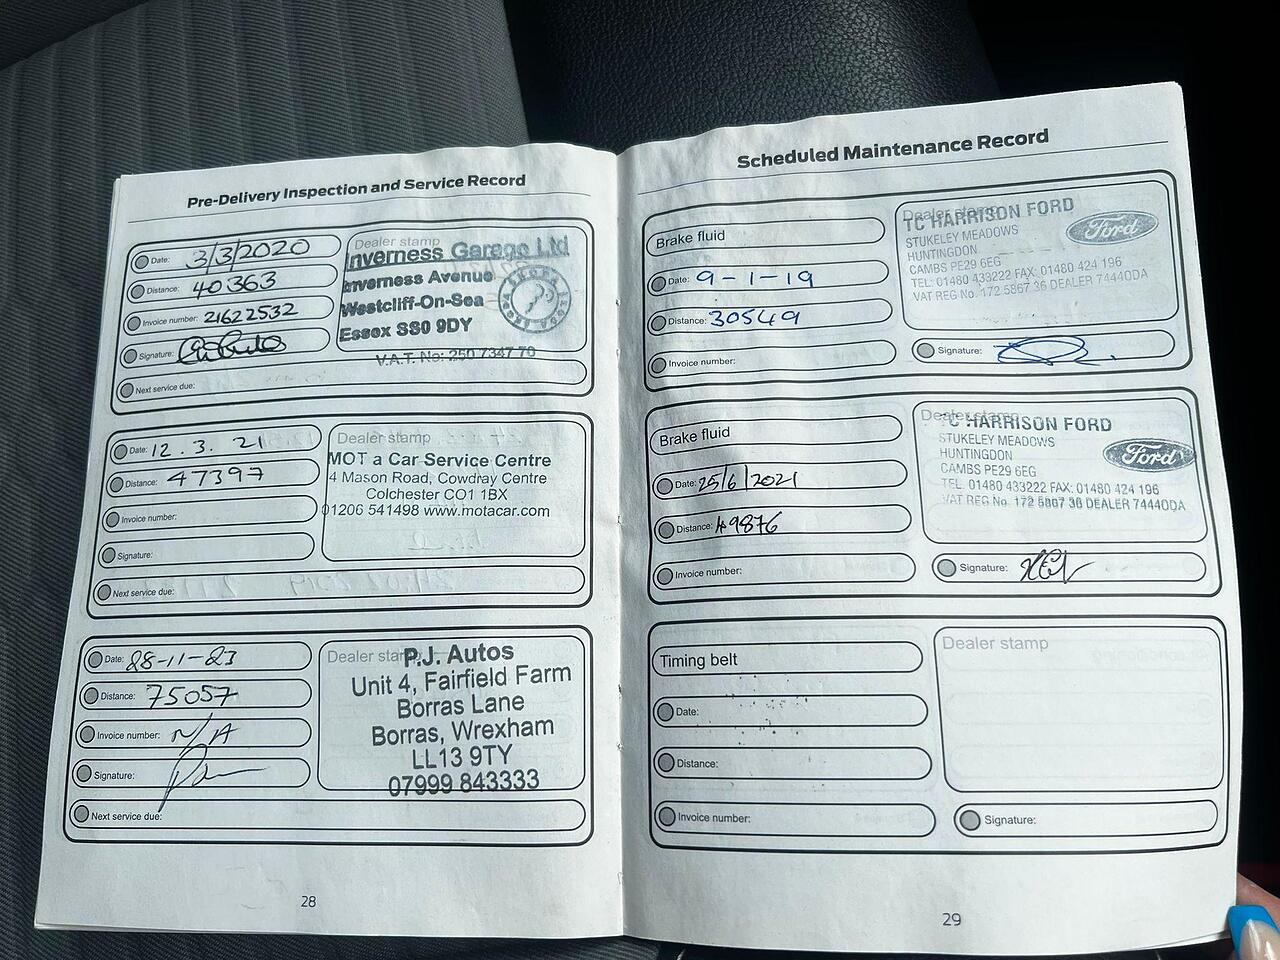 Pre-Delivery Inspection and Service Record
Date: 3/3/2020
Distance: 40363
Invoice number: 21622532
Signature:
Next service due:
Dealer stamp
Inverness Garage Ltd
Inverness Avenue
Westcliff-On-Sea
Essex SS0 9DY
V.A.T. No: 250 7347 70
Date: 12.3.21
Distance: 47397
Invoice number:
Signature:
Next service due:
Dealer stamp
MOT a Car Service Centre
4 Mason Road, Cowdray Centre
Colchester CO1 1BX
01206 541498 www.motacar.com
Date: 28-11-23
Distance: 75057
Invoice number: N/A
Signature:
Next service due:
Dealer stamp
P.J. Autos
Unit 4, Fairfield Farm
Borras Lane
Borras, Wrexham
LL13 9TY
07999 843333
28
Scheduled Maintenance Record
Brake fluid
Date: 9-1-19
Distance: 30549
Invoice number:
Dealer stamp
TC HARRISON FORD
STUKELEY MEADOWS
HUNTINGDON
CAMBS PE29 6EG
TEL: 01480 433222 FAX: 01480 424 196
VAT REG No. 172 5867 36 DEALER 74440DA
Ford
Signature:
Brake fluid
Date: 25/6/2021
Distance: 49876
Invoice number:
Dealer stamp
TC HARRISON FORD
STUKELEY MEADOWS
HUNTINGDON
CAMBS PE29 6EG
TEL. 01480 433222 FAX: 01480 424 196
VAT REG No. 172 5867 36 DEALER 74440DA
Ford
Signature:
Timing belt
Date:
Distance:
Invoice number:
Dealer stamp
Signature:
29